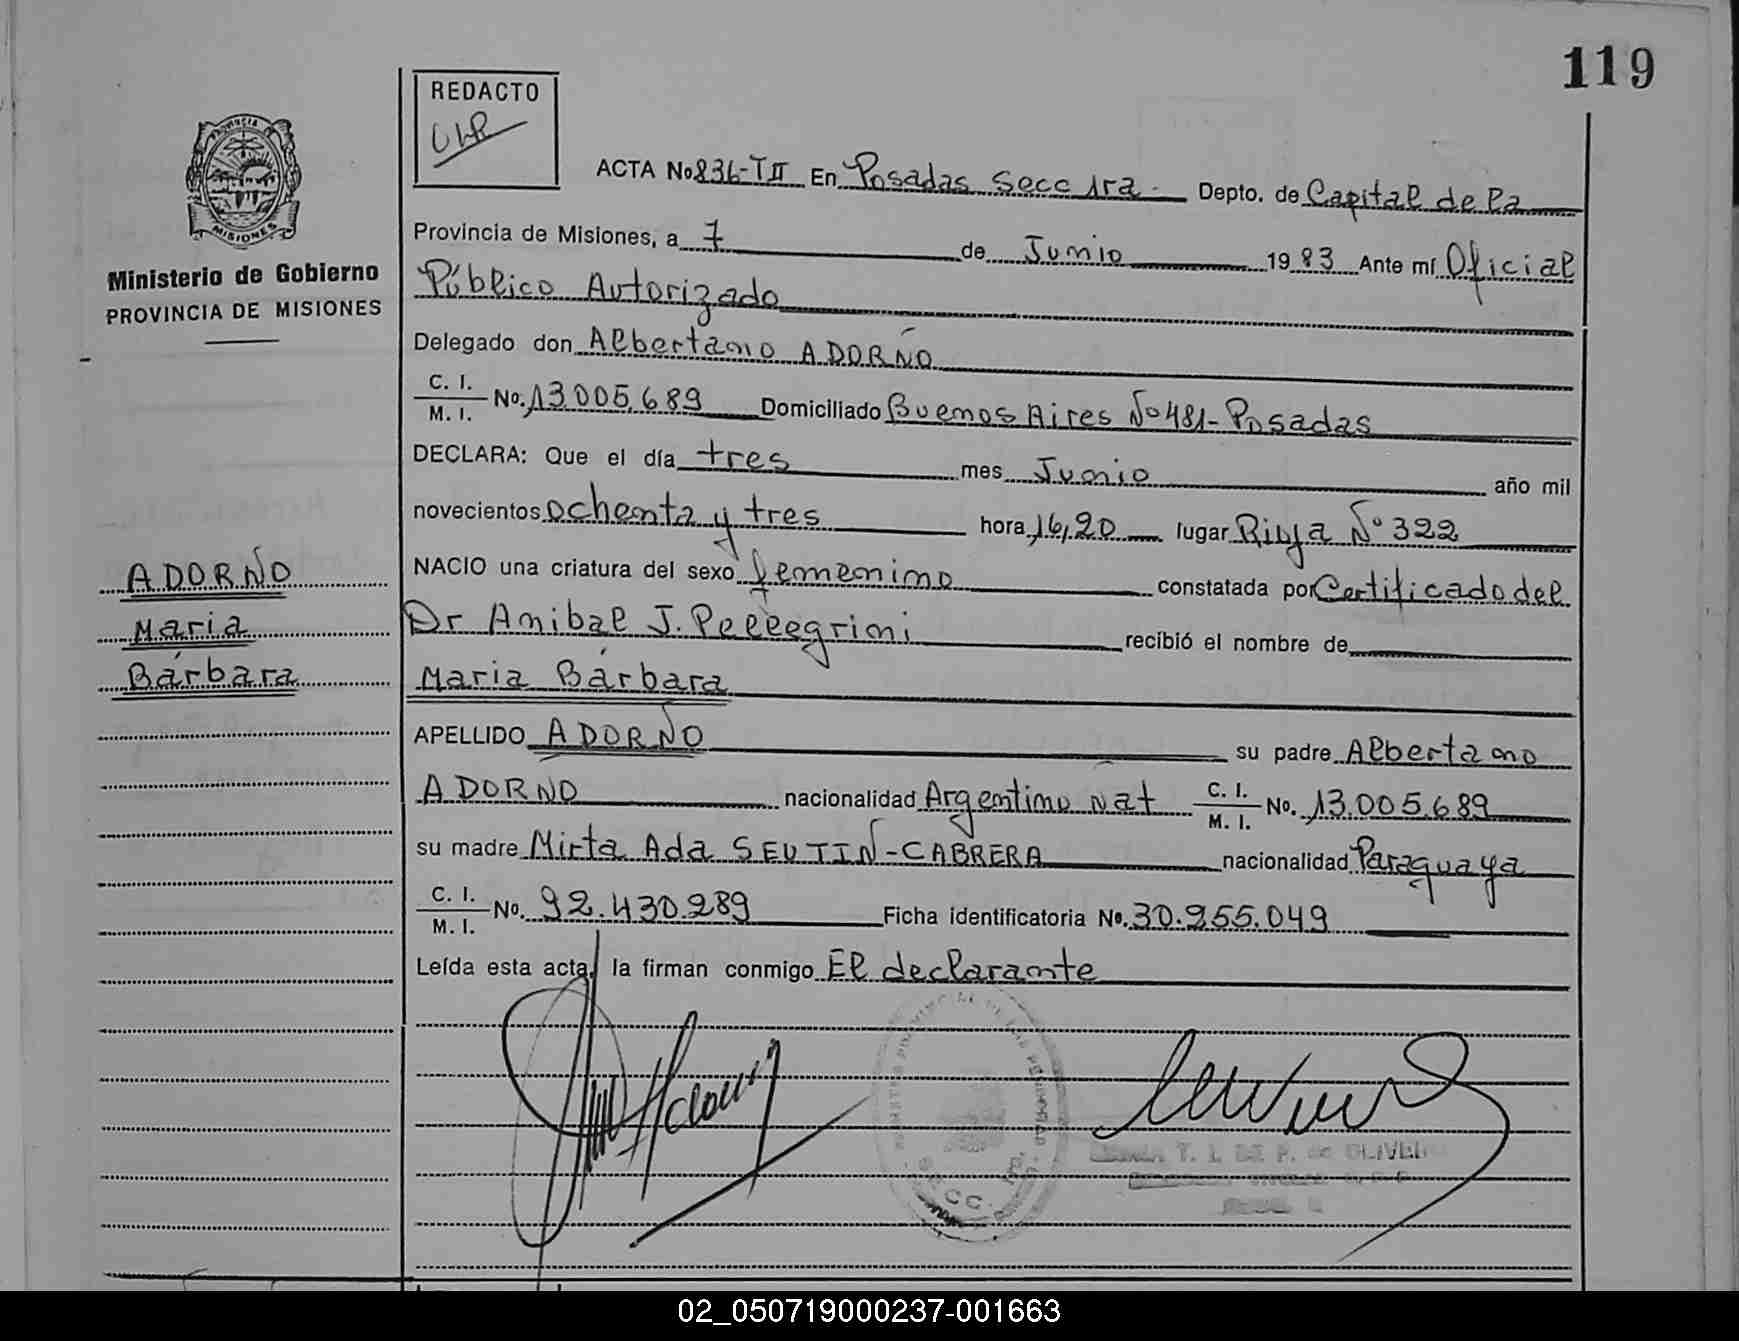 119
REDACTO
PROVINCIA DE
MISIONES
ACTA No 836-TII En Posadas Secc 1ra - Depto. de Capital de la
Provincia de Misiones, a 7 de Junio 1983 Ante mí Oficial
Ministerio de Gobierno
PROVINCIA DE MISIONES
Público Autorizado
Delegado don Albertano ADORNO
C. I.
M. I. No. 13.005.689 Domiciliado Buenos Aires Nº 481- Posadas
DECLARA: Que el día tres mes Junio año mil
novecientos ochenta y tres hora 16,20 lugar Rioja Nº 322
ADORNO
NACIO una criatura del sexo femenino constatada por Certificado del
Maria
Dr Anibal J. Pellegrini recibió el nombre de
Bárbara
Maria Bárbara
APELLIDO ADORNO su padre Albertano
ADORNO nacionalidad Argentino Nat C. I. M. I. No. 13.005.689
su madre Mirta Ada SEUTIN-CABRERA nacionalidad Paraguaya
C. I.
M. I. No. 92.430.289 Ficha identificatoria No. 30.255.049
Leída esta acta, la firman conmigo El declarante
SECC.
T. I. DE P. de OLIVEIRA
02_050719000237-001663